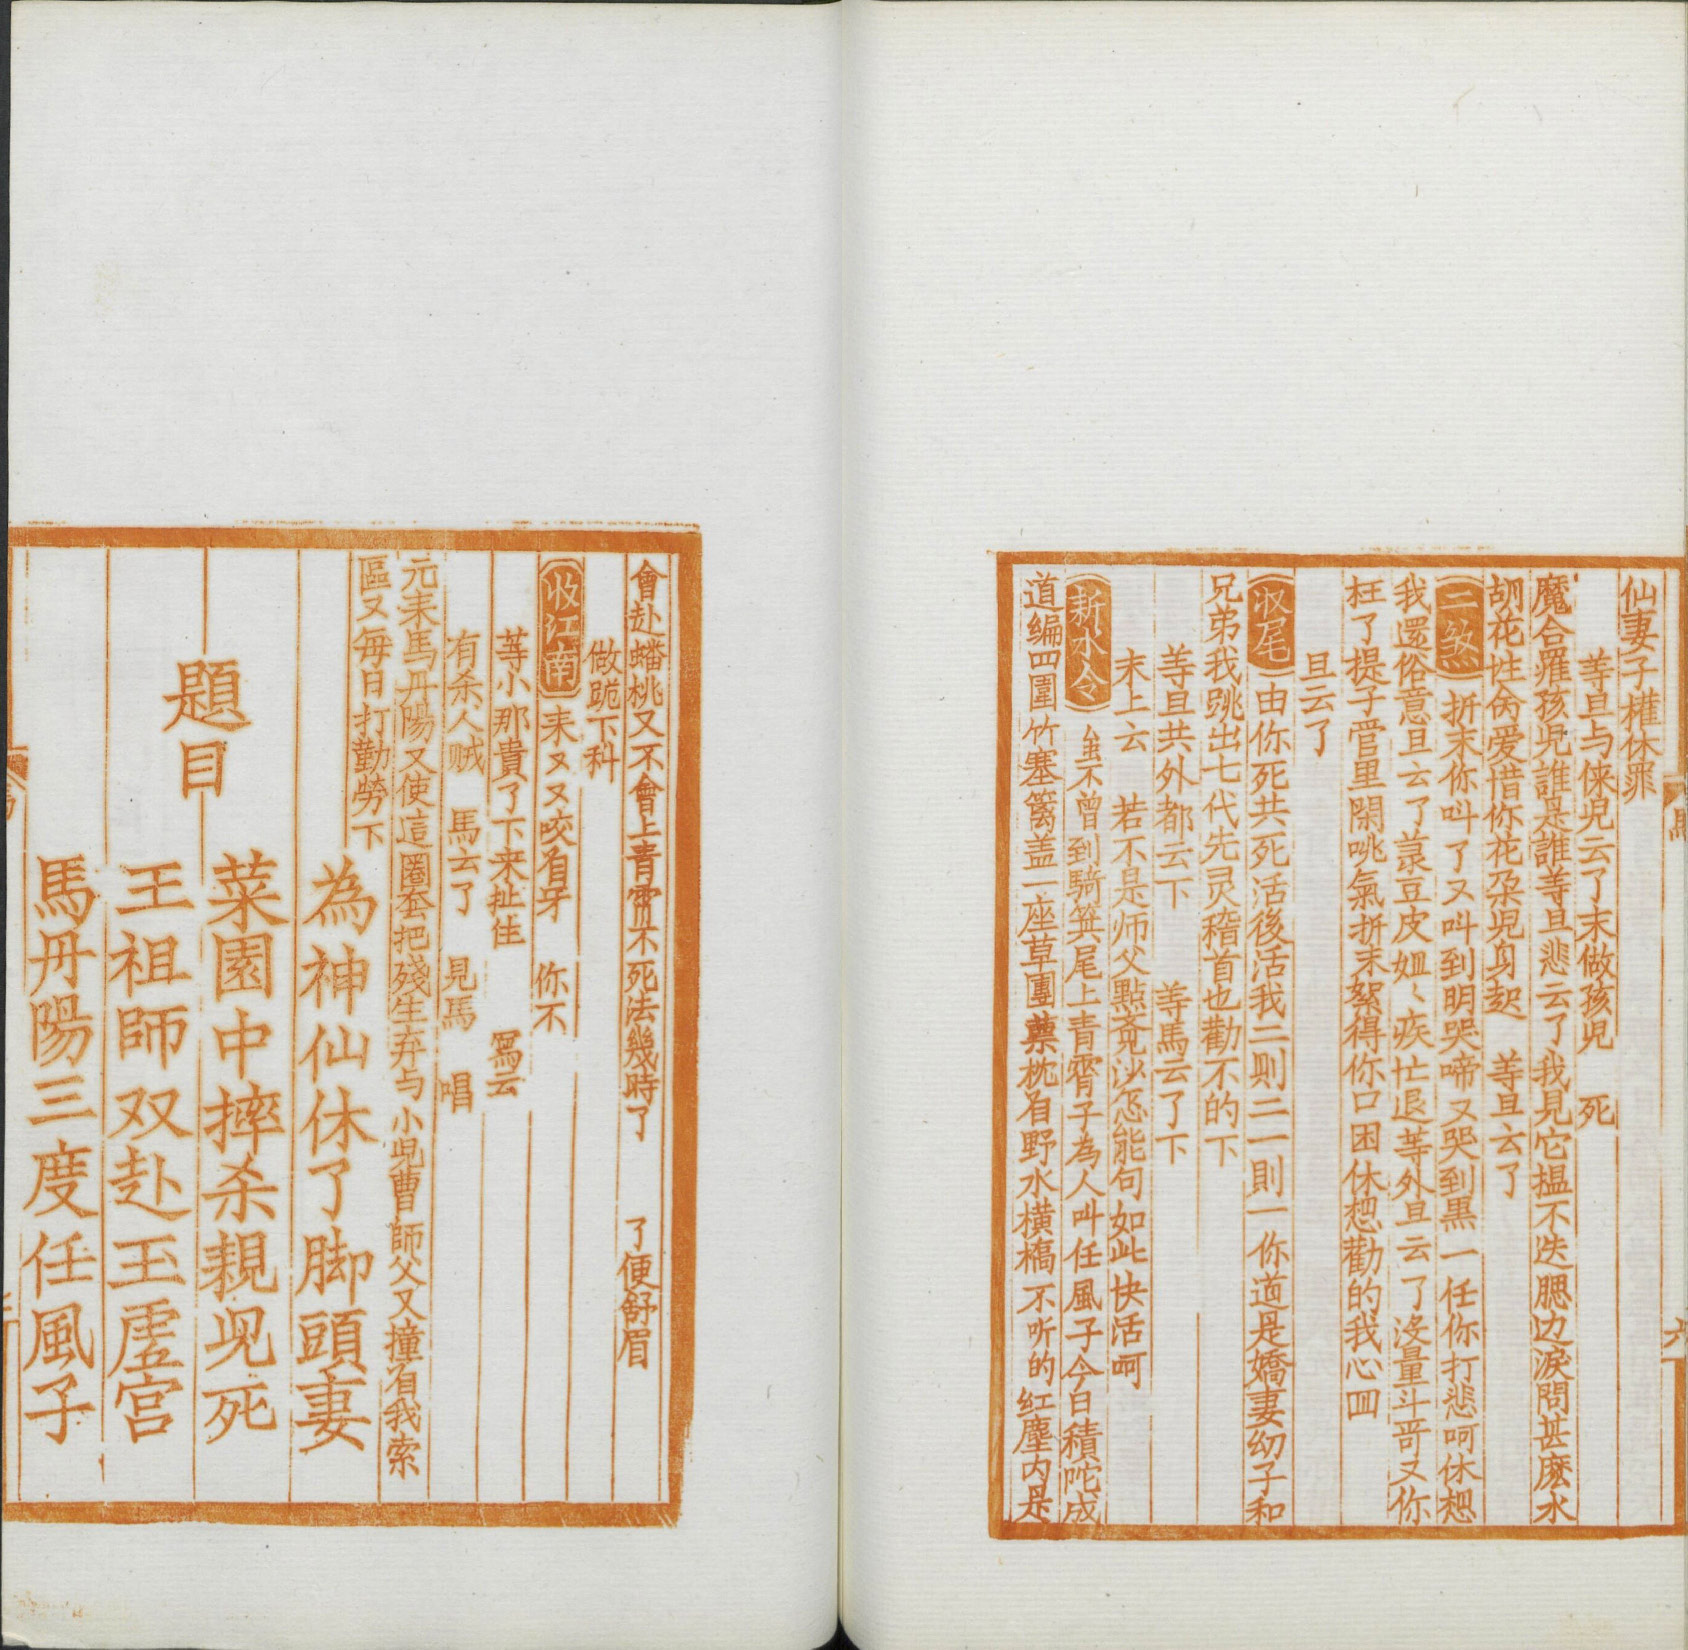 仙妻子權休罪
等旦与倈児云了末做孩児　死
魔合羅孩児誰是誰等旦悲云了我見它揾不迭腮边淚問甚麽水
胡花性命爱惜你花朶児身起　等旦云了
二煞　折末你叫了又叫到明哭啼又哭到黑一任你打悲呵休想
我還俗意旦云了菉豆皮姐〻疾忙退等外旦云了沒量斗哥又你
枉了提子管里閑咷氣折末絮得你口困休想勸的我心回
旦云了
收尾　由你死共死活後活我二則二一則一你道是嬌妻幼子和
兄弟我跳出七代先灵稽首也勸不的下
等旦共外都云下　等馬云了下
末上云　若不是师父點觉沙怎能句如此快活呵
新水令　虽不曾到騎箕尾上青霄子為人叫任風子今日積陀成
道编四圍竹塞籬盖一座草團藥枕有野水橫橋不听的红塵内是
會赴蟠桃又不會上青霄不死法幾時了　了便舒眉
做跪下科
收江南　耒又又咬有牙　你不
等小那貴了下来扯住　寫云
有杀人贼　馬云了　見馬　唱
元耒馬丹陽又使這圈套把殘生弃与小児曹師父又撞有我索
區又每日打勤勞下
題目
為神仙休了脚頭妻
菜園中摔杀親児死
王祖師双赴玉虚宫
馬丹陽三度任風子